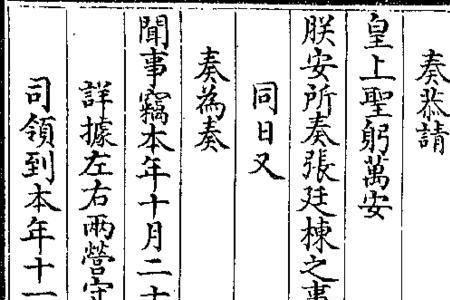 奏恭請
皇上聖躬萬安
朕安所奏張廷棟之事
同日又
奏為奏
聞事竊本年十月二十
詳據左右兩營守
司領到本年十一